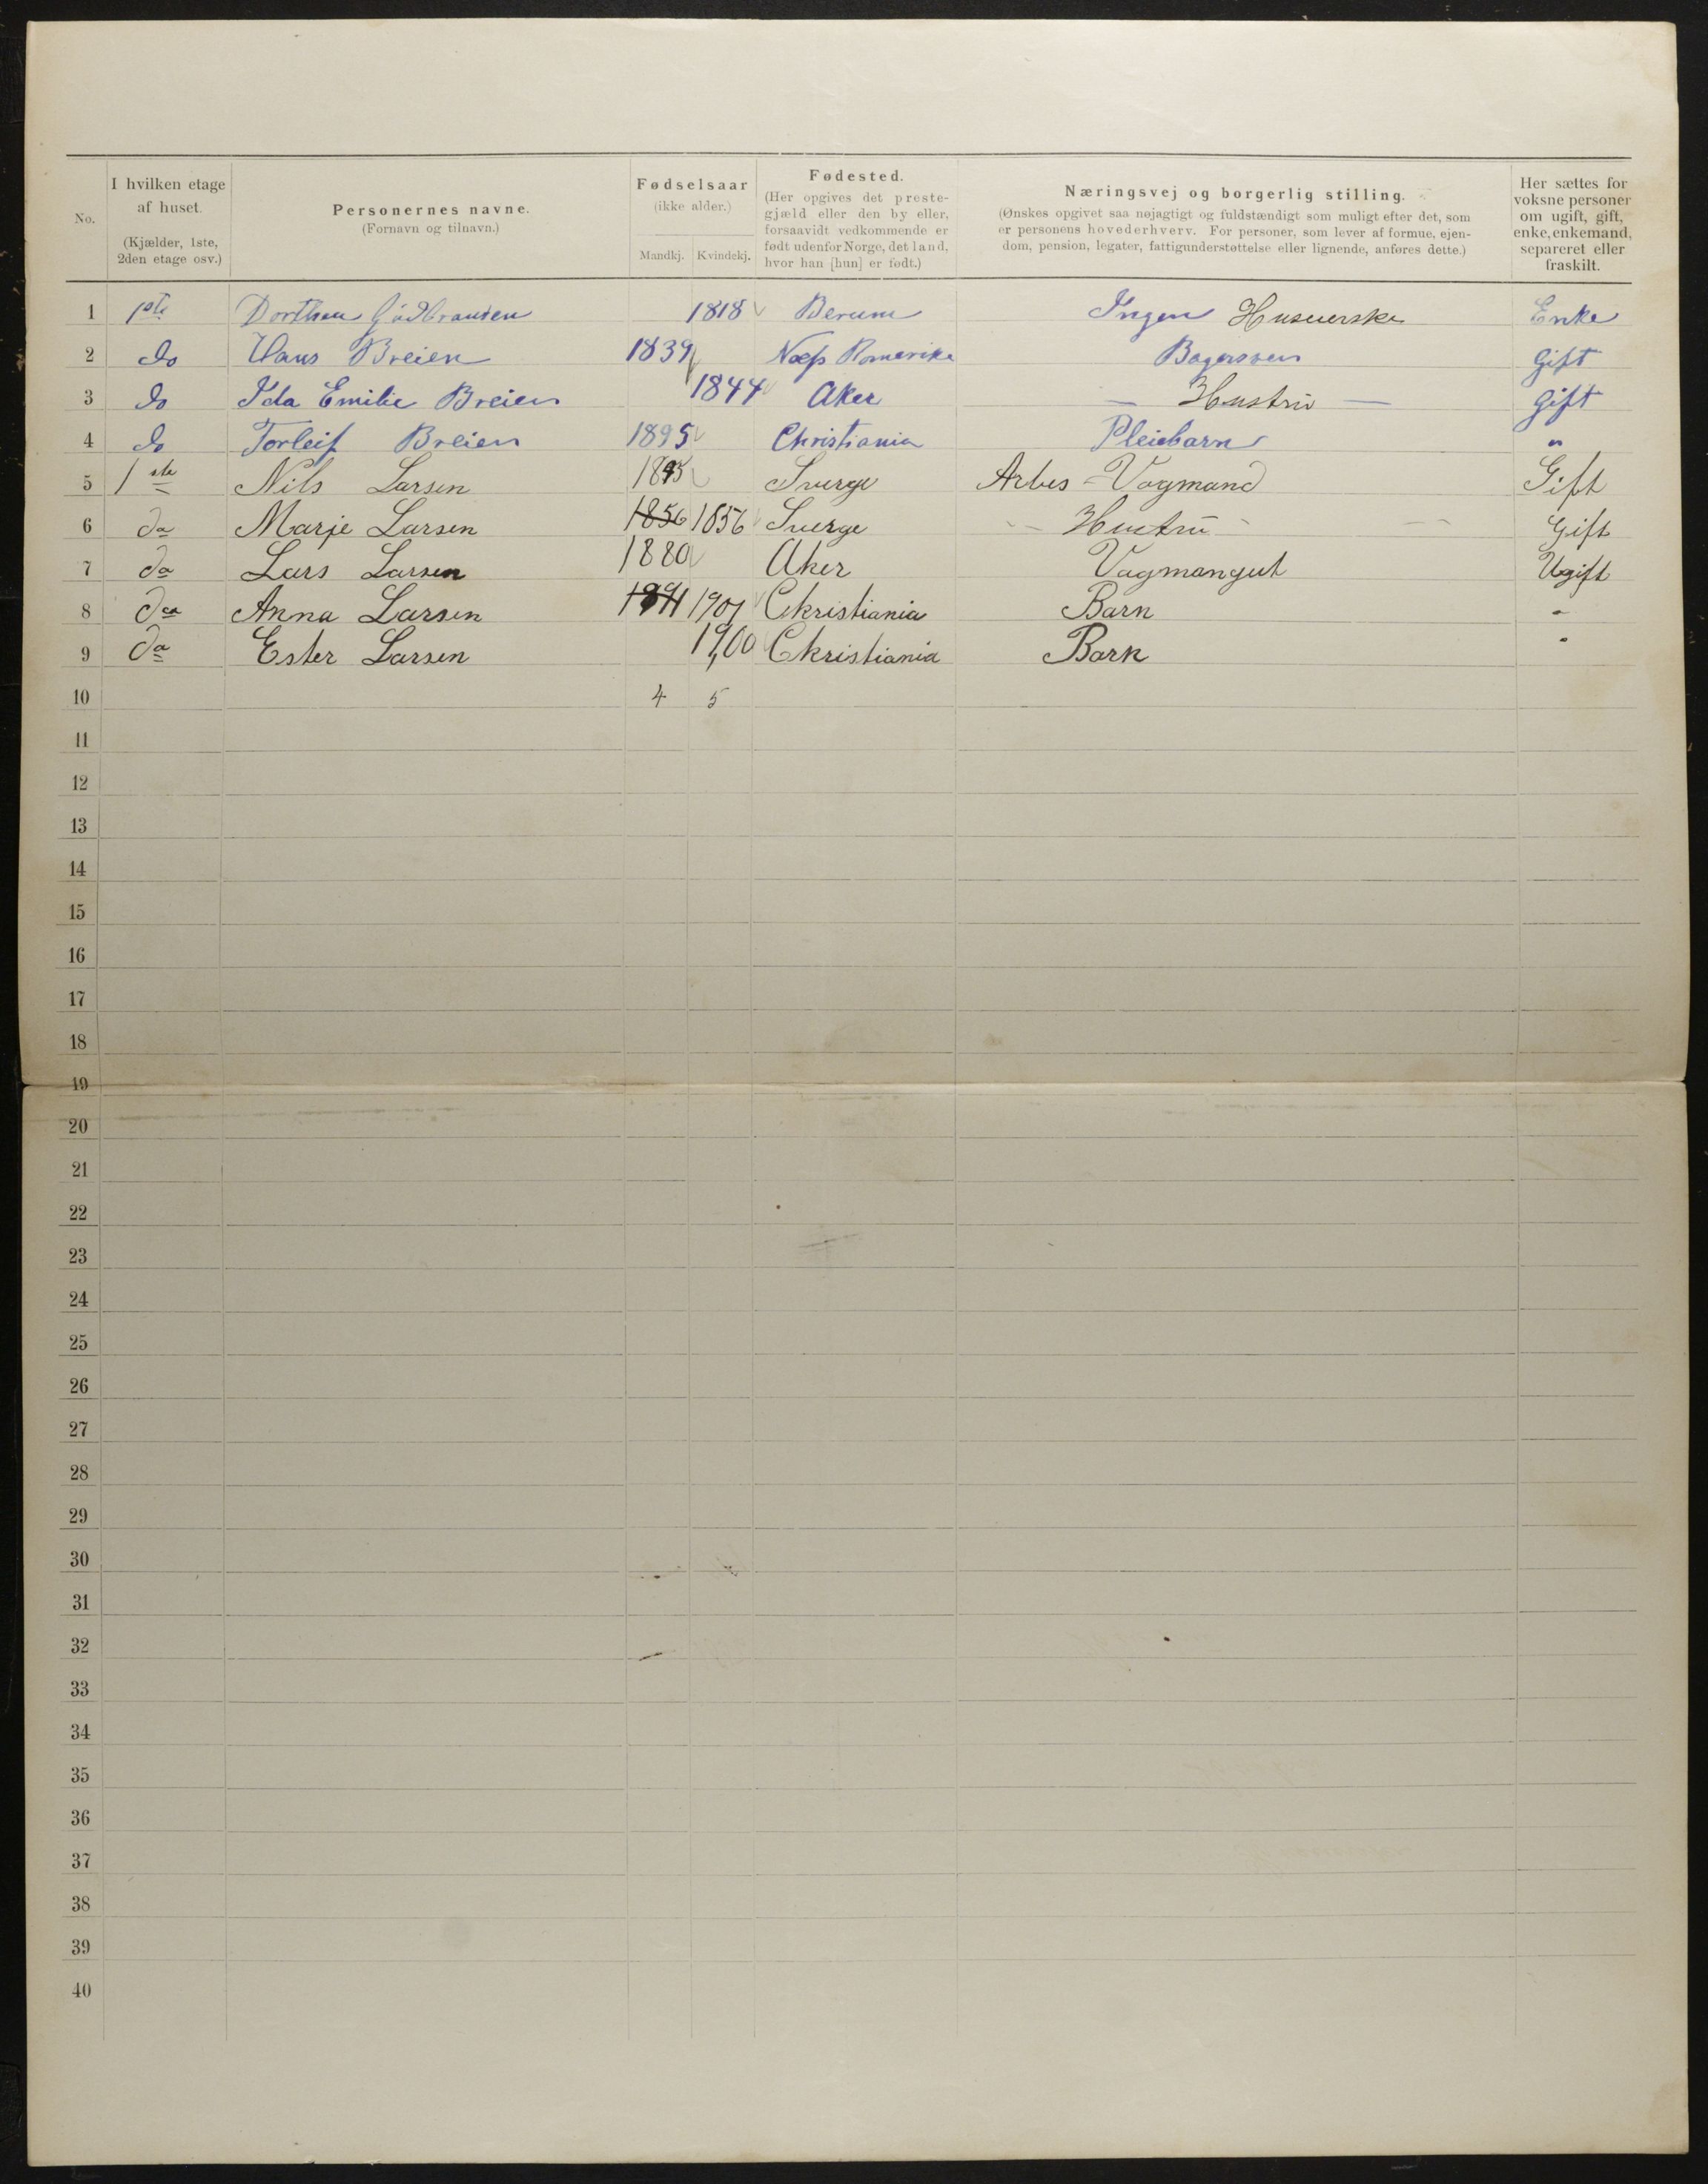 No.
I hvilken etage af huset. (Kjælder, 1ste, 2den etage osv.)
Personernes navne. (Fornavn og tilnavn.)
Fødselsaar (ikke alder.) Mandkj. Kvindekj.
Fødested. (Her opgives det prestegjæld eller den by eller, forsaavidt vedkommende er født udenfor Norge, det land, hvor han [hun] er født.)
Næringsvej og borgerlig stilling. (Ønskes opgivet saa nøjagtigt og fuldstændigt som muligt efter det, som er personens hovederhverv. For personer, som lever af formue, ejendom, pension, legater, fattigunderstøttelse eller lignende, anføres dette.)
Her sættes for voksne personer om ugift, gift, enke, enkemand, separeret eller fraskilt.
1 1ste Dorthea Gudbransen 1818 Berum Ingen Husuerske Enke
2 do Hans Breien 1839 Næss Romerike Bagersven Gift
3 do Ida Emilie Breien 1844 Aker — Hustru — gift
4 do Torleif Breien 1895 Christiania Pleiebarn "
5 1ste Nils Larsen Sverge Arbes - Vogmand Gift
6 do Marje Larsen 1856 1856 Sverge Hustru Gift
7 do Lars Larsen 1880 Aker Vagmangut Ugift
8 do Anna Larsen 1901 Ckristiania Barn "
9 do Ester Larsen 1900 Ckristiania Bark "
10 4 5
11
12
13
14
15
16
17
18
19
20
21
22
23
24
25
26
27
28
29
30
31
32
33
34
35
36
37
38
39
40